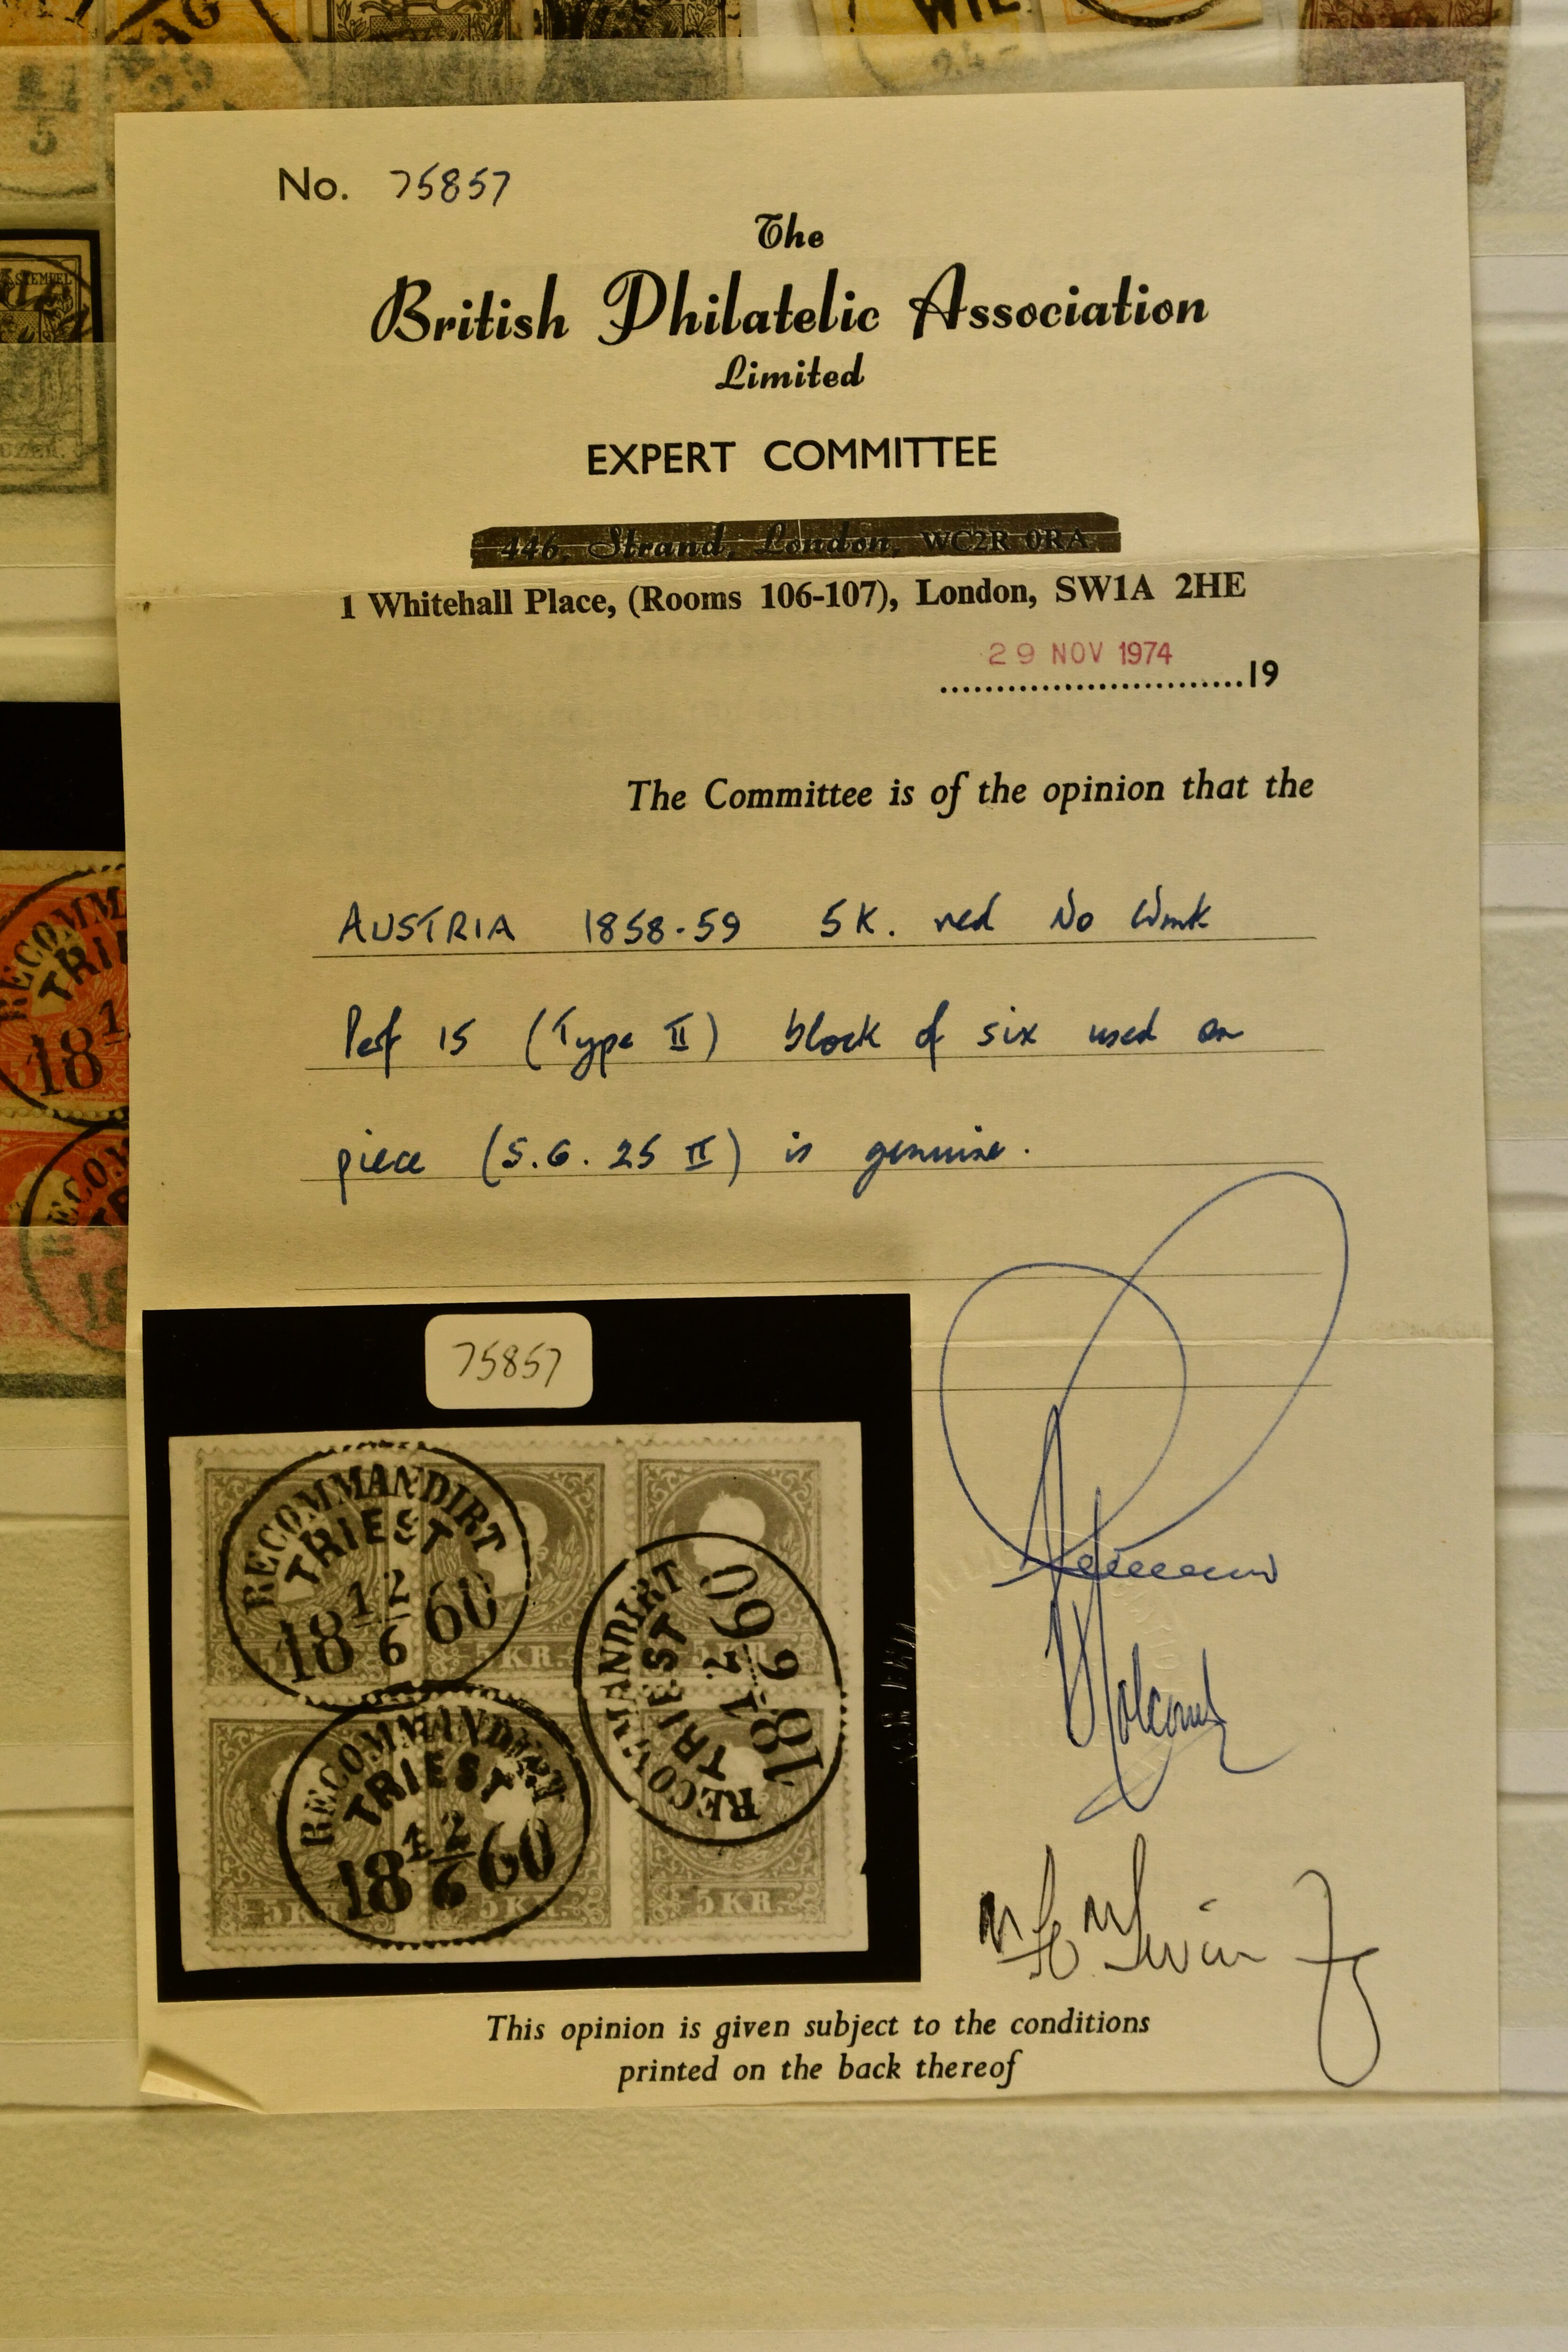 No. 75857
The
British Philatelic Association
Limited
EXPERT COMMITTEE
446, Strand, London, WC2R 0RA
1 Whitehall Place, (Rooms 106-107), London, SW1A 2HE
29 NOV 1974
............................19
The Committee is of the opinion that the
AUSTRIA 1858-59 5K. red No Wmk
Perf 15 (Type II) block of six used on
piece (S.G. 25 II) is genuine.
75857
RECOMMANDIRT
TRIEST
18 12/6 60
5 KR.
RECOMMANDIRT
TRIEST
18 12/6 60
RECOMMANDIRT
TRIEST
18 12/6 60
5 KR.
5 KR.
5 KR.
This opinion is given subject to the conditions
printed on the back thereof
STEMPEL
RECOMM
TRI
18
WIE